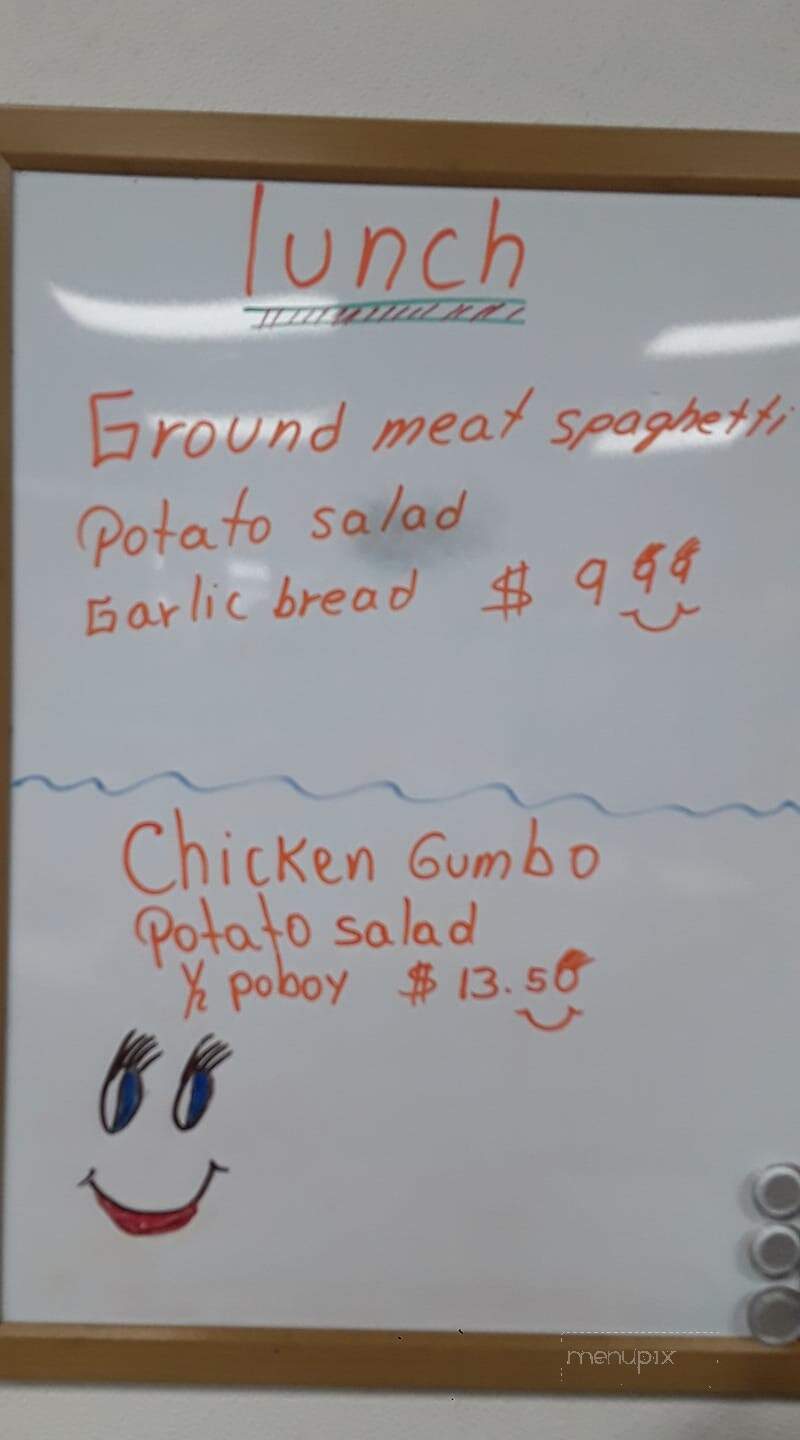 lunch
Ground meat spaghetti
Potato salad
Garlic bread $ 9 99
Chicken Gumbo
Potato salad
1/2 poboy $ 13.50
menupix